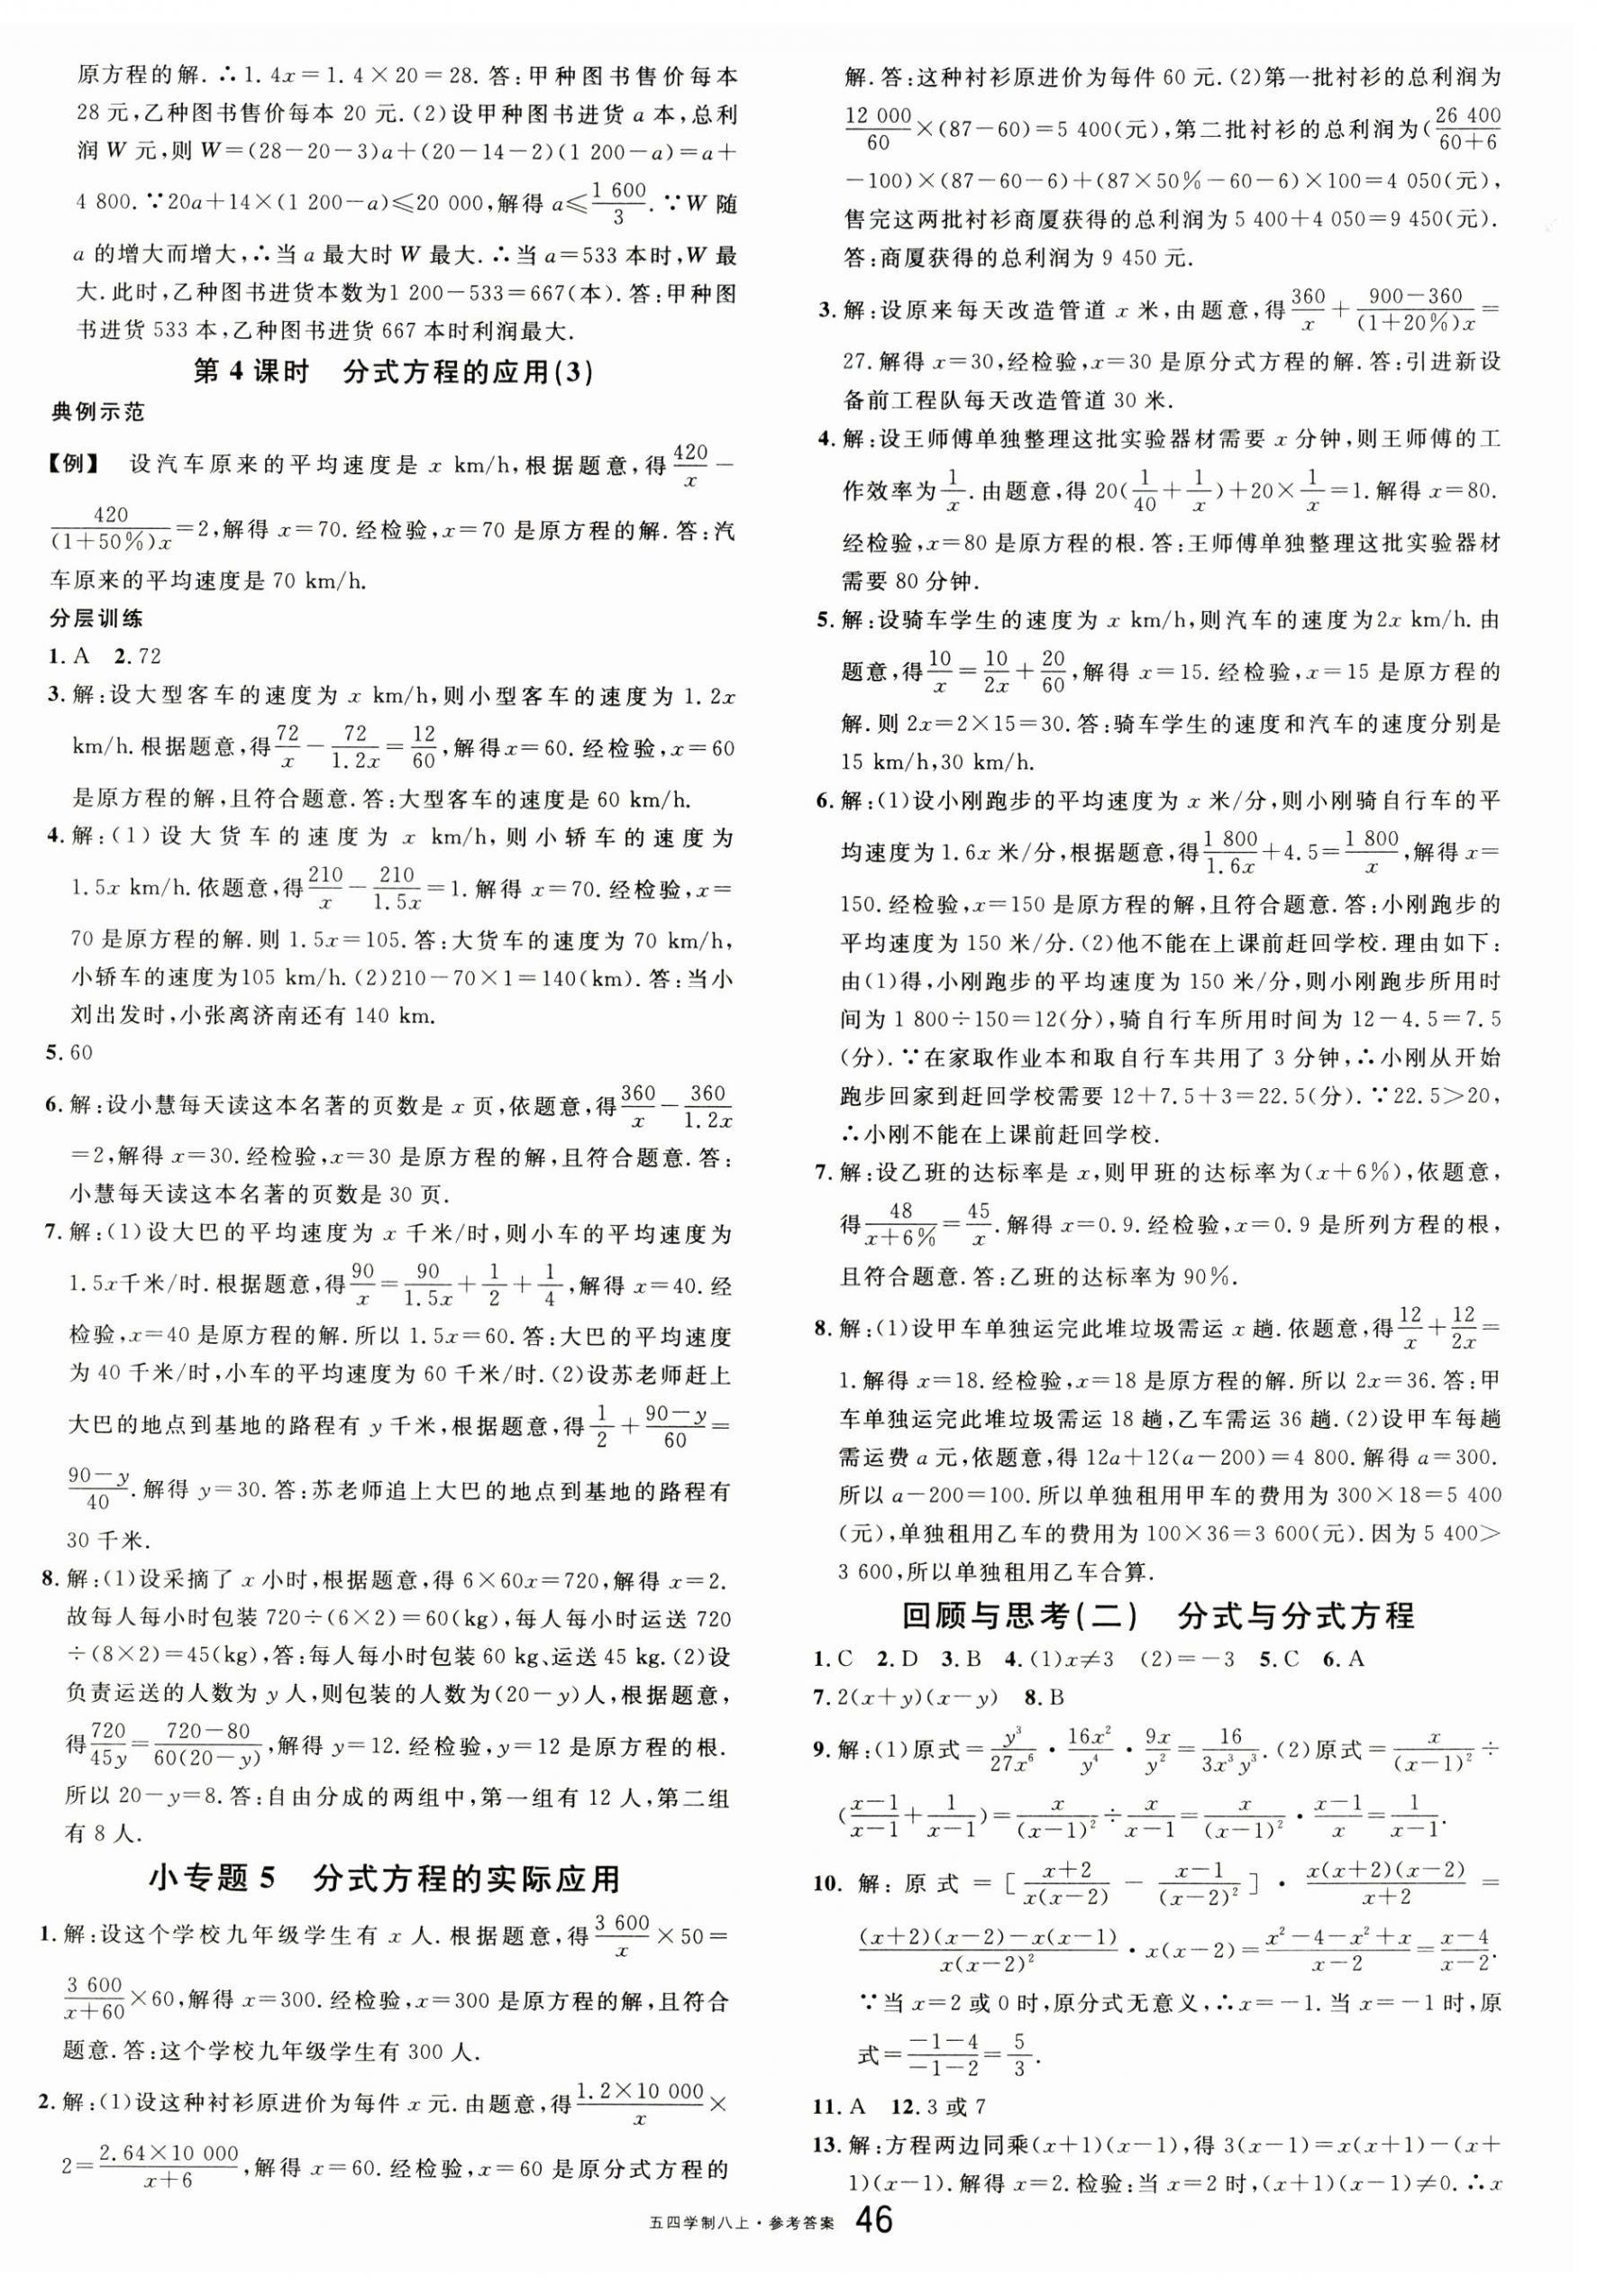 原方程的解.∴1.4x=1.4×20=28.答:甲种图书售价每本
28元,乙种图书售价每本20元.(2)设甲种图书进货a本,总利
润W元,则W=(28-20-3)a+(20-14-2)(1 200-a)=a+
4 800.∵20a+14×(1 200-a)≤20 000,解得a≤1 600/3.∵W随
a的增大而增大,∴当a最大时W最大.∴当a=533本时,W最
大.此时,乙种图书进货本数为1 200-533=667(本).答:甲种图
书进货533本,乙种图书进货667本时利润最大.
第4课时 分式方程的应用(3)
典例示范
【例】 设汽车原来的平均速度是x km/h,根据题意,得420/x-
420/(1+50%)x=2,解得x=70.经检验,x=70是原方程的解.答:汽
车原来的平均速度是70 km/h.
分层训练
1.A 2.72
3.解:设大型客车的速度为x km/h,则小型客车的速度为1.2x
km/h.根据题意,得72/x-72/1.2x=12/60,解得x=60.经检验,x=60
是原方程的解,且符合题意.答:大型客车的速度是60 km/h.
4.解:(1)设大货车的速度为x km/h,则小轿车的速度为
1.5x km/h.依题意,得210/x-210/1.5x=1.解得x=70.经检验,x=
70是原方程的解.则1.5x=105.答:大货车的速度为70 km/h,
小轿车的速度为105 km/h.(2)210-70×1=140(km).答:当小
刘出发时,小张离济南还有140 km.
5.60
6.解:设小慧每天读这本名著的页数是x页,依题意,得360/x-360/1.2x
=2,解得x=30.经检验,x=30是原方程的解,且符合题意.答:
小慧每天读这本名著的页数是30页.
7.解:(1)设大巴的平均速度为x千米/时,则小车的平均速度为
1.5x千米/时.根据题意,得90/x=90/1.5x+1/2+1/4,解得x=40.经
检验,x=40是原方程的解.所以1.5x=60.答:大巴的平均速度
为40千米/时,小车的平均速度为60千米/时.(2)设苏老师赶上
大巴的地点到基地的路程有y千米,根据题意,得1/2+(90-y)/60=
(90-y)/40.解得y=30.答:苏老师追上大巴的地点到基地的路程有
30千米.
8.解:(1)设采摘了x小时,根据题意,得6×60x=720,解得x=2.
故每人每小时包装720÷(6×2)=60(kg),每人每小时运送720
÷(8×2)=45(kg),答:每人每小时包装60 kg、运送45 kg.(2)设
负责运送的人数为y人,则包装的人数为(20-y)人,根据题意,
得720/45y=(720-80)/60(20-y),解得y=12.经检验,y=12是原方程的根.
所以20-y=8.答:自由分成的两组中,第一组有12人,第二组
有8人.
小专题5 分式方程的实际应用
1.解:设这个学校九年级学生有x人.根据题意,得3 600/x×50=
3 600/(x+60)×60,解得x=300.经检验,x=300是原方程的解,且符合
题意.答:这个学校九年级学生有300人.
2.解:(1)设这种衬衫原进价为每件x元.由题意,得1.2×10 000/x×
2=2.64×10 000/(x+6),解得x=60.经检验,x=60是原分式方程的
解.答:这种衬衫原进价为每件60元.(2)第一批衬衫的总利润为
12 000/60×(87-60)=5 400(元),第二批衬衫的总利润为(26 400/(60+6)
-100)×(87-60-6)+(87×50%-60-6)×100=4 050(元),
售完这两批衬衫商厦获得的总利润为5 400+4 050=9 450(元).
答:商厦获得的总利润为9 450元.
3.解:设原来每天改造管道x米,由题意,得360/x+(900-360)/(1+20%)x=
27.解得x=30,经检验,x=30是原分式方程的解.答:引进新设
备前工程队每天改造管道30米.
4.解:设王师傅单独整理这批实验器材需要x分钟,则王师傅的工
作效率为1/x.由题意,得20(1/40+1/x)+20×1/x=1.解得x=80.
经检验,x=80是原方程的根.答:王师傅单独整理这批实验器材
需要80分钟.
5.解:设骑车学生的速度为x km/h,则汽车的速度为2x km/h.由
题意,得10/x=10/2x+20/60,解得x=15.经检验,x=15是原方程的
解.则2x=2×15=30.答:骑车学生的速度和汽车的速度分别是
15 km/h,30 km/h.
6.解:(1)设小刚跑步的平均速度为x米/分,则小刚骑自行车的平
均速度为1.6x米/分,根据题意,得1 800/1.6x+4.5=1 800/x,解得x=
150.经检验,x=150是原方程的解,且符合题意.答:小刚跑步的
平均速度为150米/分.(2)他不能在上课前赶回学校.理由如下:
由(1)得,小刚跑步的平均速度为150米/分,则小刚跑步所用时
间为1 800÷150=12(分),骑自行车所用时间为12-4.5=7.5
(分).∵在家取作业本和取自行车共用了3分钟,∴小刚从开始
跑步回家到赶回学校需要12+7.5+3=22.5(分).∵22.5>20,
∴小刚不能在上课前赶回学校.
7.解:设乙班的达标率是x,则甲班的达标率为(x+6%),依题意,
得48/(x+6%)=45/x.解得x=0.9.经检验,x=0.9是所列方程的根,
且符合题意.答:乙班的达标率为90%.
8.解:(1)设甲车单独运完此堆垃圾需运x趟.依题意,得12/x+12/2x=
1.解得x=18.经检验,x=18是原方程的解.所以2x=36.答:甲
车单独运完此堆垃圾需运18趟,乙车需运36趟.(2)设甲车每趟
需运费a元,依题意,得12a+12(a-200)=4 800.解得a=300.
所以a-200=100.所以单独租用甲车的费用为300×18=5 400
(元),单独租用乙车的费用为100×36=3 600(元).因为5 400>
3 600,所以单独租用乙车合算.
回顾与思考(二) 分式与分式方程
1.C 2.D 3.B 4.(1)x≠3 (2)=-3 5.C 6.A
7.2(x+y)(x-y) 8.B
9.解:(1)原式=y³/27x⁶·16x²/y⁴·9x/y²=16/3x³y³.(2)原式=x/(x-1)²÷
((x-1)/(x-1)+1/(x-1))=x/(x-1)²÷x/(x-1)=x/(x-1)²·(x-1)/x=1/(x-1).
10.解:原式=[(x+2)/x(x-2)-(x-1)/(x-2)²]·x(x+2)(x-2)/(x+2)=
((x+2)(x-2)-x(x-1))/x(x-2)²·x(x-2)=(x²-4-x²+x)/(x-2)=(x-4)/(x-2).
∵当x=2或0时,原分式无意义,∴x=-1.当x=-1时,原
式=(-1-4)/(-1-2)=5/3.
11.A 12.3或7
13.解:方程两边同乘(x+1)(x-1),得3(x-1)=x(x+1)-(x+
1)(x-1).解得x=2.检验:当x=2时,(x+1)(x-1)≠0.∴x
五四学制八上·参考答案 46